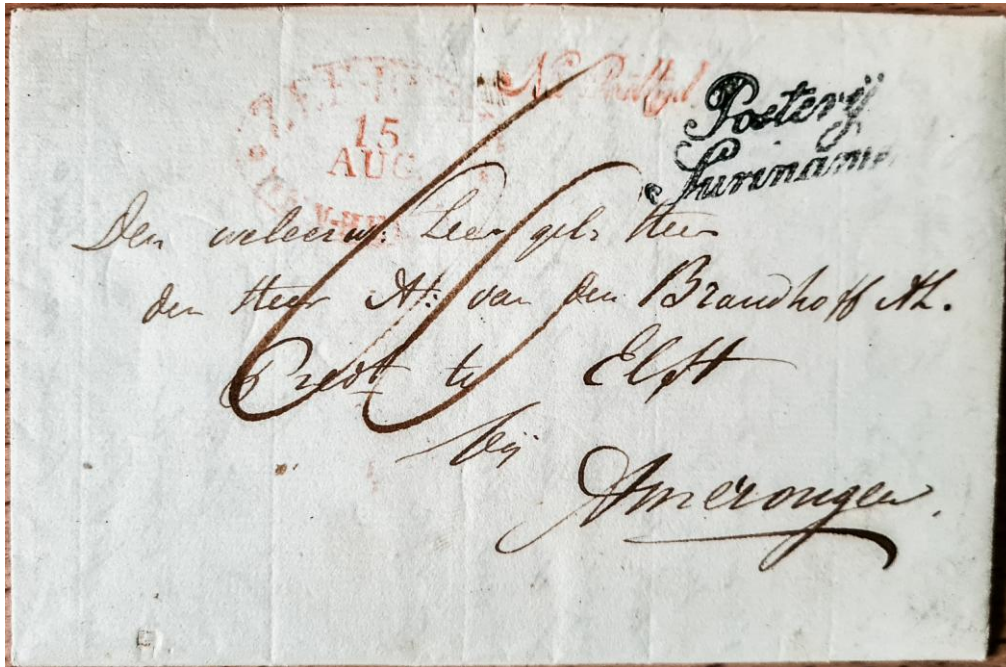 15
AUG
Na Posttyd
Posterij
Suriname
Den weleerw: Zeer gel: Heer
den Heer A: van den Brandhoff Az.
Predt te Elst
bij
Amerongen.